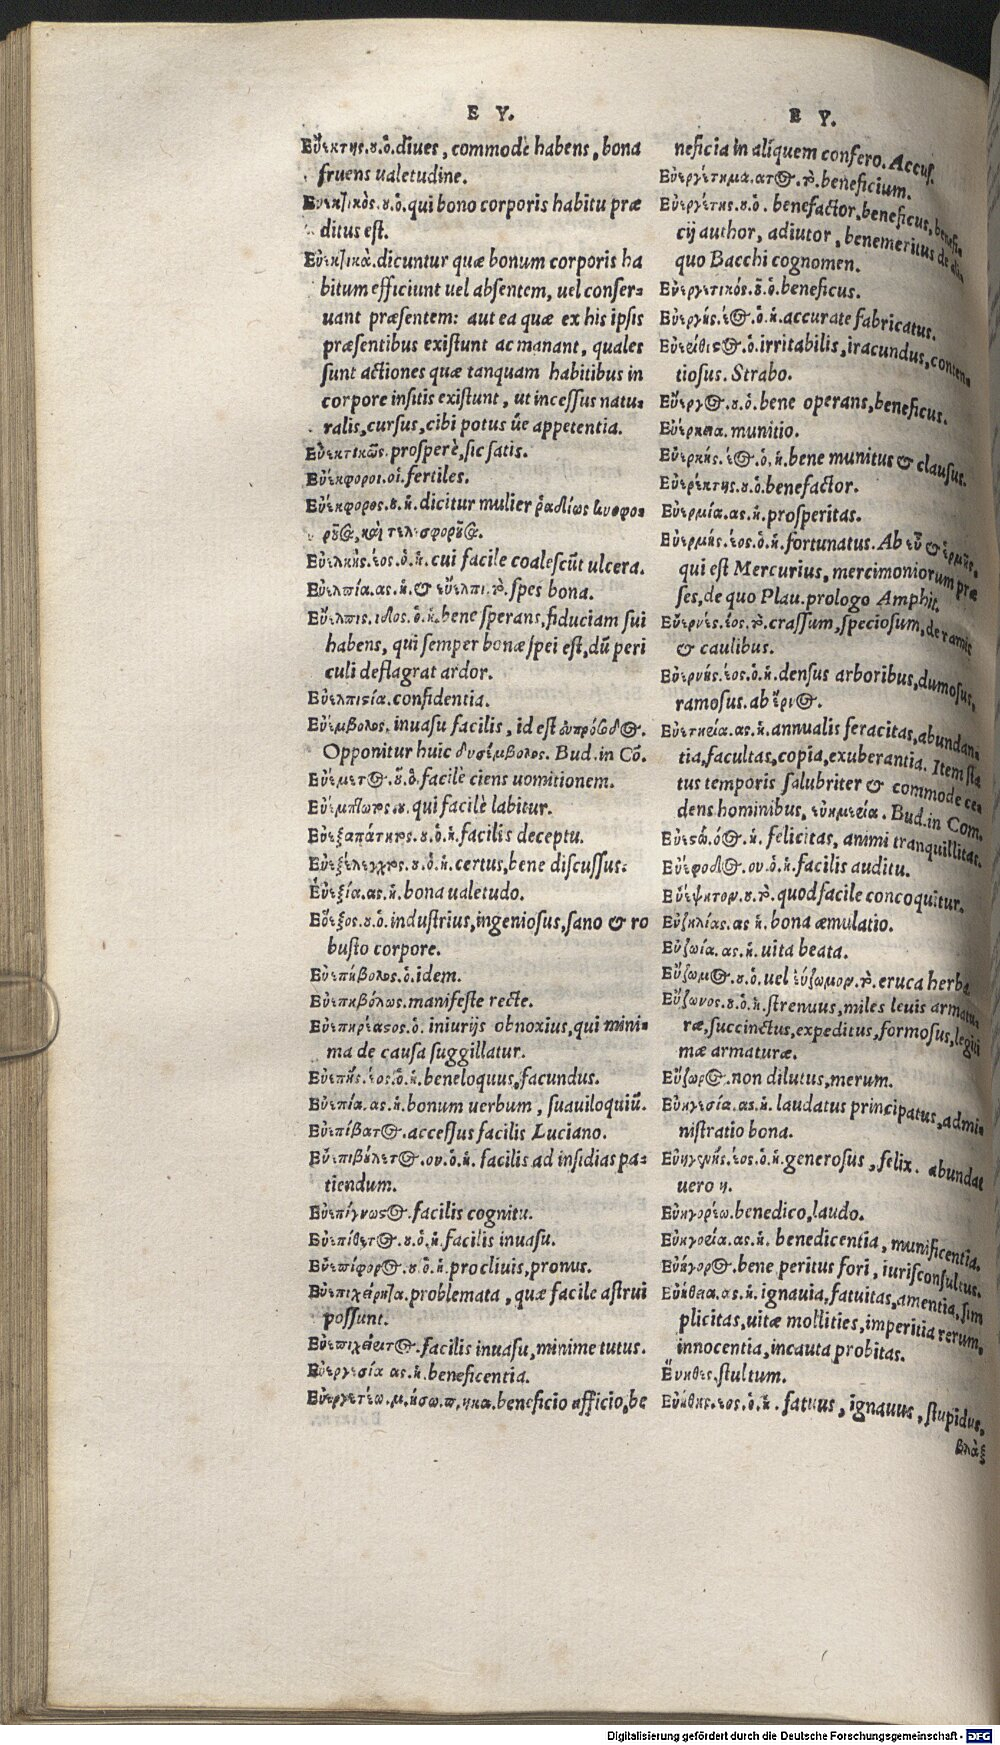 Ε Υ.
Εὐέκτης.ου.ὁ.diues, commodè habens, bona
fruens ualetudine.
Εὐεκτικὸς.οῦ.ὁ.qui bono corporis habitu præ
ditus est.
Εὐεκτικὰ.dicuntur quæ bonum corporis ha
bitum efficiunt uel absentem, uel conser-
uant præsentem: aut ea quæ ex his ipsis
præsentibus existunt ac manant, quales
sunt actiones quæ tanquam habitibus in
corpore insitis existunt, ut incessus natu-
ralis, cursus, cibi potus úe appetentia.
Εὐεκτικῶς.prosperè, sic satis.
Εὐέκφοροι.οἱ.fertiles.
Εὐέκφορος.ου.ἡ.dicitur mulier ῥαδίως κυοφο-
ροῦσα, καὶ τελεσφοροῦσα.
Εὐελκὴς.έος.ὁ.ἡ.cui facile coalescūt ulcera.
Εὐελπία.ας.ἡ. & εὔελπι.τὸ.spes bona.
Εὔελπις.ιδος.ὁ.ἡ.bene sperans, fiduciam sui
habens, qui semper bonæ spei est, dū peri
culi deflagrat ardor.
Εὐελπισία.confidentia.
Εὐέμβολος.inuasu facilis, id est εὐπρόσοδος.
Opponitur huic δυσέμβολος. Bud. in Cō.
Εὐέμετος.ου.ὁ.facilè ciens uomitionem.
Εὐέμπτωτος.ου.qui facilè labitur.
Εὐεξαπάτητος.ου.ὁ.ἡ.facilis deceptu.
Εὐεξέλεγκτος.ου.ὁ.ἡ.certus, bene discussus.
Εὐεξία.ας.ἡ.bona ualetudo.
Εὔεξος.ου.ὁ.industrius, ingeniosus, sano & ro
busto corpore.
Εὐεπήβολος.ὁ.idem.
Εὐεπηβόλως.manifeste recte.
Εὐεπηρέαστος.ὁ. iniurijs obnoxius, qui mini-
ma de causa suggillatur.
Εὐεπὴς.έος.ὁ.ἡ.beneloquus, facundus.
Εὐεπία.ας.ἡ.bonum uerbum, suauiloquiū.
Εὐεπίβατος.accessus facilis Luciano.
Εὐεπιβούλευτος.ου.ὁ.ἡ. facilis ad insidias pa-
tiendum.
Εὐεπίγνωστος.facilis cognitu.
Εὐεπίθετος.ου.ὁ.ἡ.facilis inuasu.
Εὐεπίφορος.ου.ὁ.ἡ.procliuis, pronus.
Εὐεπιχείρητα.problemata, quæ facile astrui
possunt.
Εὐεπιχείρητος.facilis inuasu, minime tutus.
Εὐεργεσία ας.ἡ.beneficentia.
Εὐεργετέω.μ.ήσω.π.ηκα.beneficio afficio, be
Ε Υ.
neficia in aliquem confero. Accus.
Εὐεργέτημα.ατος.τὸ.beneficium.
Εὐεργέτης.ου.ὁ. benefactor, beneficus, benefi-
cij author, adiutor, benemeritus de
quo Bacchi cognomen.
Εὐεργετικός.οῦ.ὁ.beneficus.
Εὐεργὴς.έος.ὁ.ἡ.accurate fabricatus.
Εὐερέθιστος.ὁ.irritabilis, iracundus, conten-
tiosus. Strabo.
Εὔεργος.ου.ὁ. bene operans, beneficus.
Εὐέρκεια.munitio.
Εὐερκὴς.έος.ὁ.ἡ.bene munitus & clausus.
Εὐερέκτης.ου.ὁ.benefactor.
Εὐερμία.ας.ἡ.prosperitas.
Εὐερμὴς.έος.ὁ.ἡ.fortunatus. Ab εὖ & ἑρμῆς.
qui est Mercurius, mercimoniorum præ
ses, de quo Plau. prologo Amphit.
Εὐερνὲς.έος.τὸ.crassum, speciosum, de ramis
& caulibus.
Εὐερνὴς.έος.ὁ.ἡ.densus arboribus, dumosus,
ramosus. ab ἔρνος.
Εὐετηεία.ας.ἡ.annualis feracitas, abundan-
tia, facultas, copia, exuberantia. Item sta
tus temporis salubriter & commode ce-
dens hominibus, εὐημερία. Bud. in Com.
Εὐεστὼ.όος.ἡ. felicitas, animi tranquillitas.
Εὐέφοδος.ου.ὁ.ἡ.facilis auditu.
Εὐέψητον.ου.τὸ.quod facile concoquitur.
Εὐζηλίας.ας ἡ.bona æmulatio.
Εὐζωία.ας.ἡ.uita beata.
Εὔζωμος.ου.ὁ.uel εὔζωμον.τὸ.eruca herba.
Εὔζωνος.ου.ὁ.ἡ.strenuus, miles leuis armatu-
ræ, succinctus, expeditus, formosus, legiti
mæ armaturæ.
Εὔζωρος.non dilutus, merum.
Εὐηγεσία.ας.ἡ. laudatus principatus, admi-
nistratio bona.
Εὐηγενὴς.έος.ὁ.ἡ.generosus, felix. abundat
uero η.
Εὐηγορέω.benedico, laudo.
Εὐηγορία.ας.ἡ. benedicentia, munificentia.
Εὐήγορος.bene peritus fori, iurisconsultus.
Εὐήθεια.ας.ἡ.ignauia, fatuitas, amentia, sim
plicitas, uitæ mollities, imperitia rerum,
innocentia, incauta probitas.
Εὔηθες.stultum.
Εὐήθης.εος.ὁ.ἡ. fatuus, ignauus, stupidus,
βλὰξ
Digitalisierung gefördert durch die Deutsche Forschungsgemeinschaft - DFG